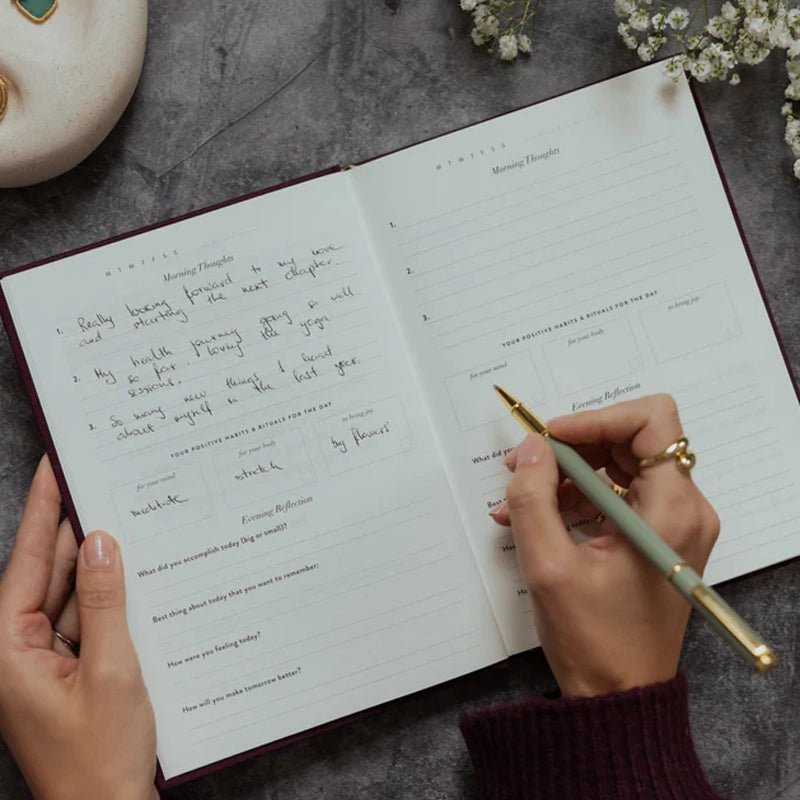 M T W T F S S
Morning Thoughts
1. Really looking forward to my move
and starting the next chapter.
2. My health journey going so well
so far. loving the yoga
sessions.
3. So many new things I learned
about myself in the last year.
YOUR POSITIVE HABITS & RITUALS FOR THE DAY
for your mind
for your body
to bring joy
meditate
stretch
buy flowers
Evening Reflection
What did you accomplish today (big or small)?
Best thing about today that you want to remember:
How were you feeling today?
How will you make tomorrow better?
M T W T F S S
Morning Thoughts
1.
2.
3.
YOUR POSITIVE HABITS & RITUALS FOR THE DAY
for your mind
for your body
to bring joy
Evening Reflection
What did
Best